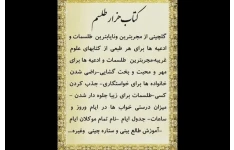 کتاب هزار طلسم
گلچینی از مجربترین ونایابترین طلسمات و
ادعیه ها برای هر طبعی از کتابهای علوم
غریبه-مجربترین طلسمات و ادعیه های
مهر و محبت و بخت گشایی-راضی شدن
خانواده ها برای خواستگاری- جذب کردن
کسی-طلسمات برای زیبا جلوه دار شدن -
میزان درستی خواب ها در ایام وروز و
ساعات- جدول ایام -نام تمام موکلان ایام
-آموزش طالع بنی و ستاره چینی وغیره...